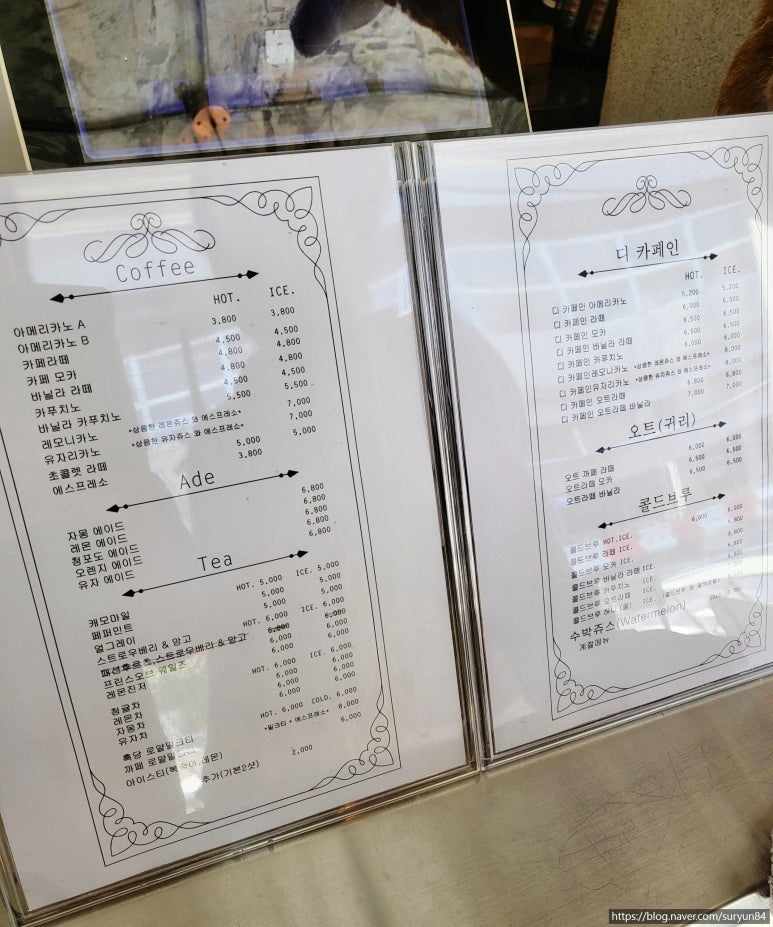 Coffee
HOT. ICE.
아메리카노 A 3,800 3,800
아메리카노 B
카페라떼 4,500 4,500
카페 모카 4,800 4,800
바닐라 라떼 4,800 4,800
카푸치노 4,500 4,500
바닐라 카푸치노 5,500 5,500
레모니카노 *상큼한 레몬쥬스 와 에스프레소* 7,000
유자리카노 *상큼한 유자쥬스 와 에스프레소* 7,000
초콜렛 라떼 5,000 5,000
에스프레소 3,800
Ade
자몽 에이드 6,800
레몬 에이드 6,800
청포도 에이드 6,800
오렌지 에이드 6,800
유자 에이드 6,800
Tea
HOT. 5,000 ICE. 5,000
캐모마일 5,000 5,000
페퍼민트 5,000 5,000
얼그레이
스트로우베리 & 망고 HOT. 6,000 ICE. 6,000
패션후르츠,스트로우베라 & 망고 6,800 6,000
프린스오브 웨일즈 6,000 6,000
레몬진저 6,000 6,000
청귤차 HOT. 6,000 ICE. 6,000
레몬차 6,000 6,000
자몽차 6,000 6,000
유자차 6,000 6,000
흑당 로얄밀크티 HOT. 6,000 COLD. 6,000
까페 로얄밀크티 *밀크티 + 에스프레소* 8,000
아이스티(복숭아,레몬) 6,000
추가(기본2샷) 2,000
디 카페인
HOT. ICE.
디 카페인 아메리카노 5,200 5,200
디 카페인 라떼 6,000 6,000
디 카페인 모카 6,500 6,500
디 카페인 바닐라 라떼 6,500 6,500
디 카페인 카푸치노 6,000 6,000
디 카페인레모니카노 *상큼한 레몬쥬스 와 에스프레소* 8,000
디 카페인유자리카노 *상큼한 유자쥬스 와 에스프레소* 8,000
디 카페인 오트라떼 6,800 6,800
디 카페인 오트라떼 바닐라 7,000 7,000
오트(귀리)
오트 까페 라떼 6,000 6,000
오트라떼 모카 6,500 6,500
오트라떼 바닐라 6,500 6,500
콜드브루
콜드브루 HOT.ICE. 6,000 6,000
콜드브루 라떼 ICE. 6,800
콜드브루 모카 ICE. 6,800
콜드브루 바닐라 라떼 ICE. 6,800
콜드브루 카푸치노 ICE.
콜드브루 오트라떼 ICE.
콜드브루 ICE.
수박쥬스(Watermelon) COLD.
계절메뉴
https://blog.naver.com/suryun84